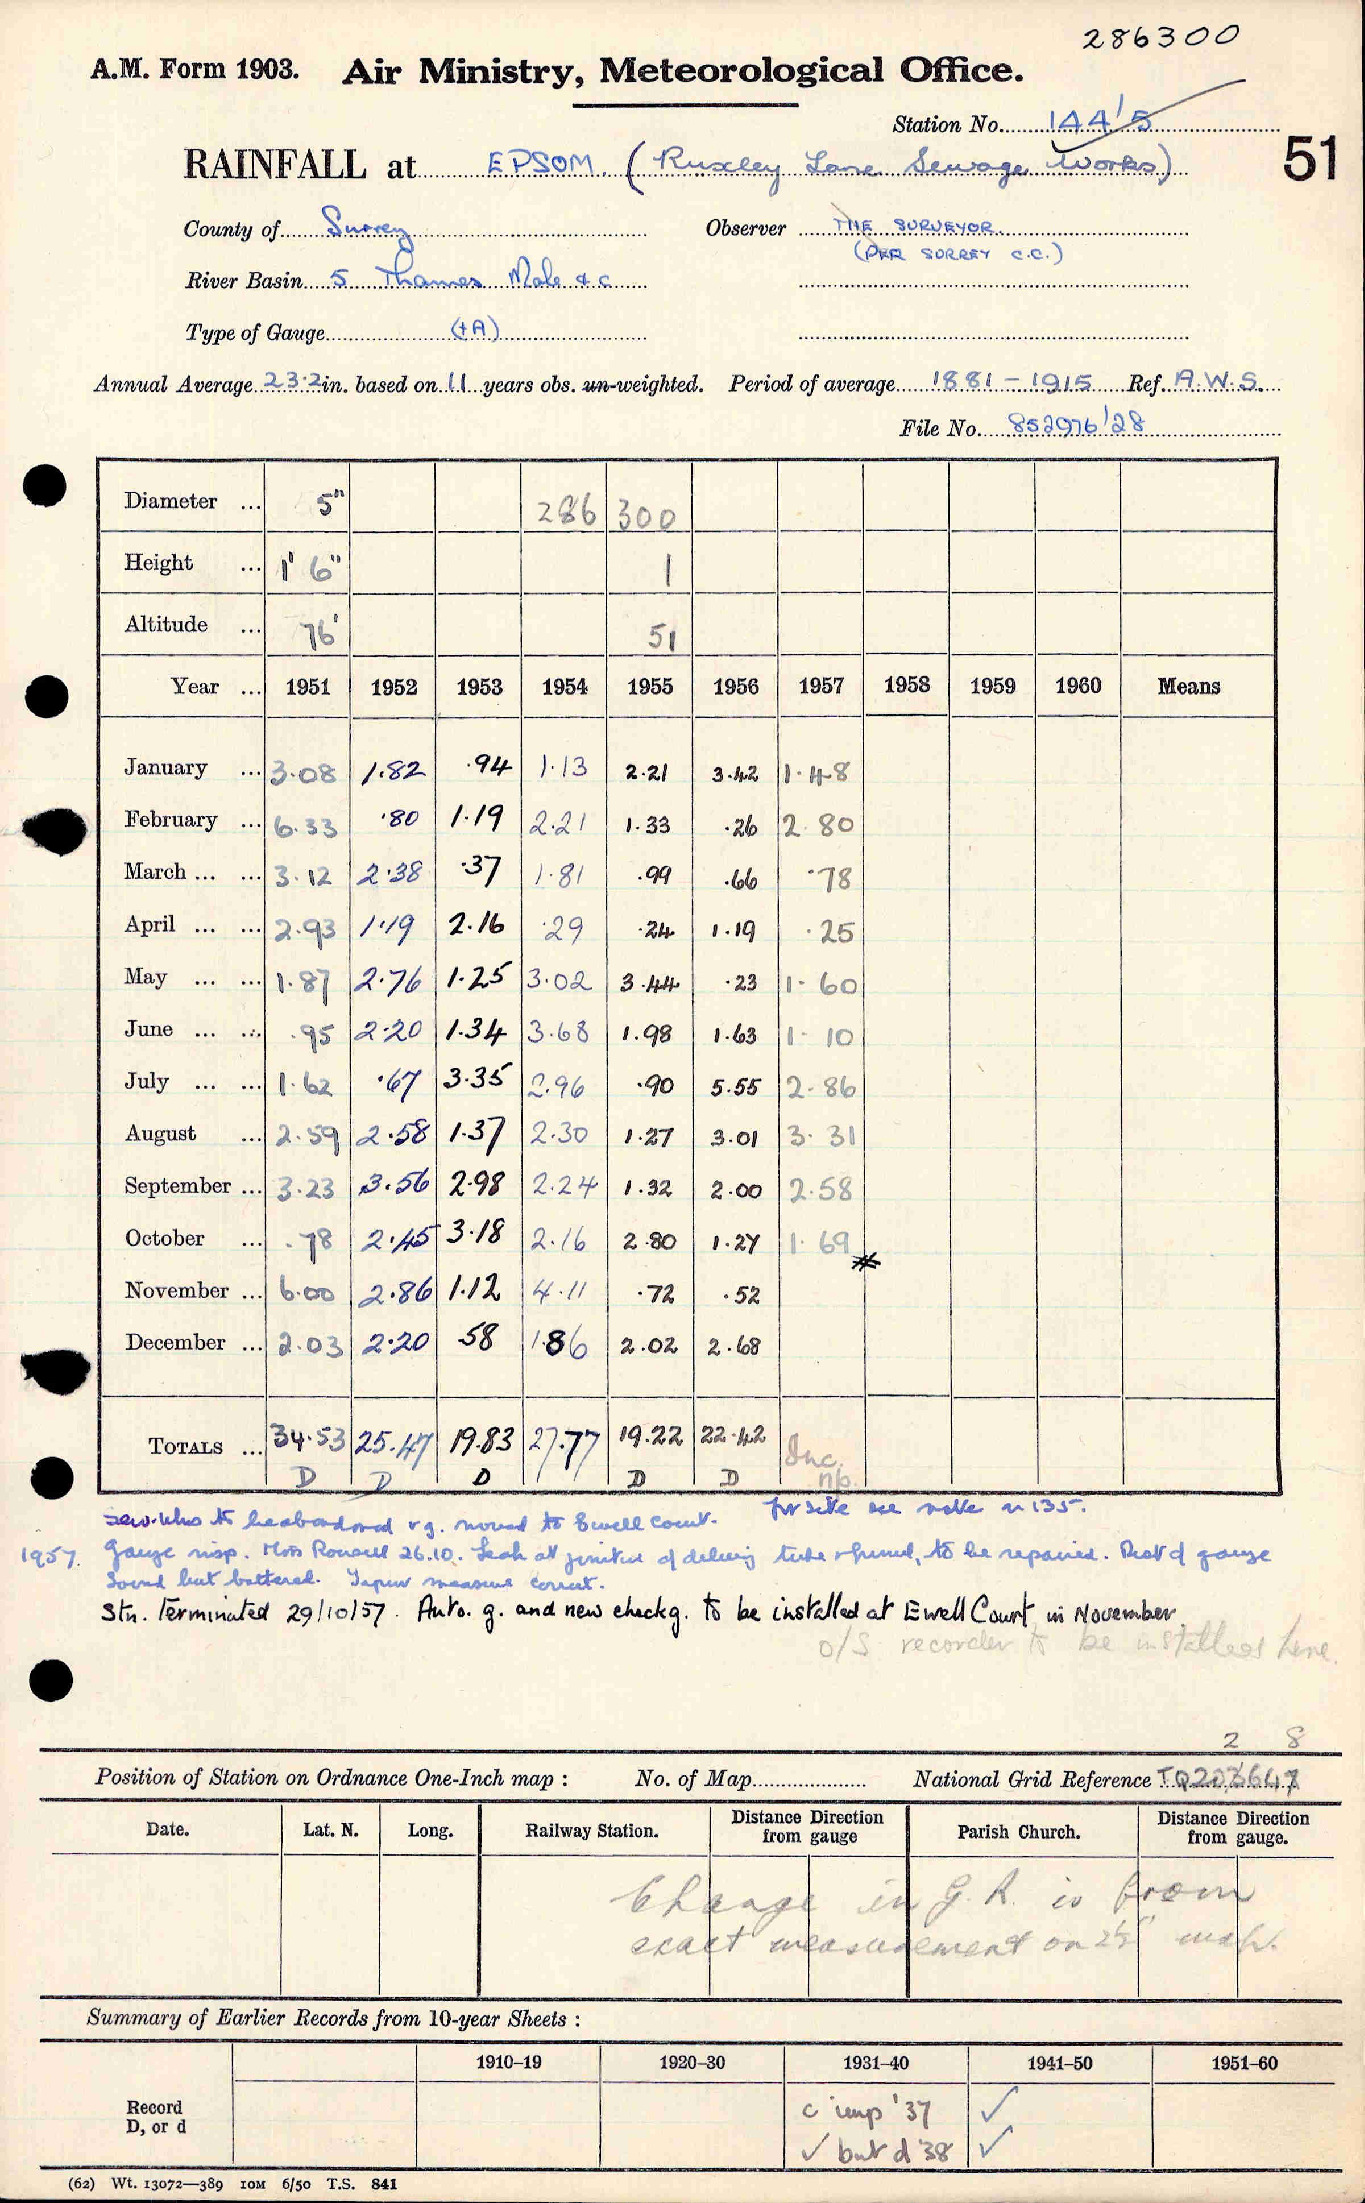 286300
A.M. Form 1903. Air Ministry, Meteorological Office.
Station No. 144/5
51
RAINFALL at EPSOM. (Ruxley Lane Sewage Works)
County of Surrey Observer THE SURVEYOR
(PER SURREY C.C.)
River Basin 5 Thames Mole & c
Type of Gauge (+A)
Annual Average 23.2 in. based on 11 years obs. un-weighted. Period of average 1881 - 1915 Ref. A.W.S.
File No. 852976/28
Diameter ... 5" 286 300
Height ... 1' 6" 1
Altitude ... 76' 51
Year ... 1951 1952 1953 1954 1955 1956 1957 1958 1959 1960 Means
January ... 3.08 1.82 .94 1.13 2.21 3.42 1.48
February ... 6.33 .80 1.19 2.21 1.33 .26 2.80
March ... ... 3.12 2.38 .37 1.81 .99 .66 .78
April ... ... 2.93 1.19 2.16 .29 .24 1.19 .25
May ... ... 1.87 2.76 1.25 3.02 3.44 .23 1.60
June ... ... .95 2.20 1.34 3.68 1.98 1.63 1.10
July ... ... 1.62 .67 3.35 2.96 .90 5.55 2.86
August ... 2.59 2.58 1.37 2.30 1.27 3.01 3.31
September ... 3.23 3.56 2.98 2.24 1.32 2.00 2.58
October ... .78 2.45 3.18 2.16 2.80 1.27 1.69
November ... 6.00 2.86 1.12 4.11 .72 .52
December ... 2.03 2.20 .58 1.86 2.02 2.68
TOTALS ... 34.53 25.47 19.83 27.77 19.22 22.42 Inc.
D D D D D n/p.
to be abandoned r.g. moved to Ewell Court. For site see note on 135.
1957. Gauge insp. 26.10. Leak at junction of delivery tube & funnel, to be repaired. Rest of gauge
sound but battered. measure correct.
Stn. Terminated 29/10/57. Auto. g. and new check g. to be installed at Ewell Court in November.
O/S recorder to be installed here.
2 8
Position of Station on Ordnance One-Inch map : No. of Map National Grid Reference TQ203647
Date. Lat. N. Long. Railway Station. Distance Direction from gauge Parish Church. Distance Direction from gauge.
Change in G.R. is from
exact measurement on 2½" map.
Summary of Earlier Records from 10-year Sheets :
1910–19 1920–30 1931–40 1941–50 1951–60
Record
D, or d
c imp '37 ✓
✓ but d '38 ✓
(62) Wt. 13072—389 10M 6/50 T.S. 841